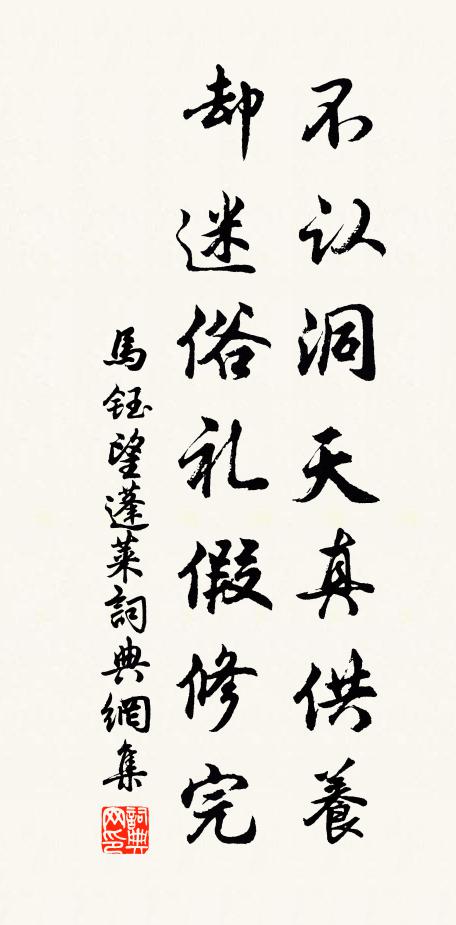 不认洞天真供養
却迷俗礼假修完
馬鈺望蓬萊詞典網集
詞典网印